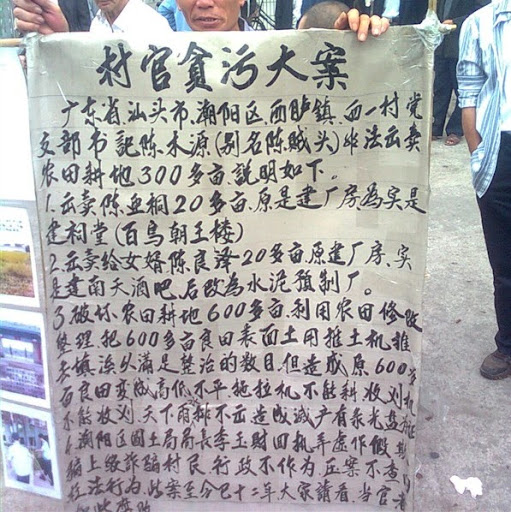 村官貪污大案
广东省汕头市,潮阳区,西胪镇,西一村党
支部书記陈木源(别名陈贼头)非法出卖
农田耕地300多亩,説明如下。
1.出卖陈 桐20多亩.原是建厂房,為实是
建祠堂(百鸟朝王楼)
2.出卖给女婿陈良泽20多亩,原建厂房,实
是建南天酒吧,后改為水泥预制厂。
3.破坏农田耕地600多亩,利用农田修改
整理把600多亩良田表面土用推土机推
去填溪从滿足整治的数目,但造成原600多
亩良田变成高低不平拖拉机不能耕收刈机
不能收刈,天下雨排不出造成减产有录光盘
4.潮阳区國土局局長李玉财 机弄虚作假
騙上級詐騙村民行政不作為压案不查
枉法行为.此案至今已十二年,大家請看,当官者
如此腐败